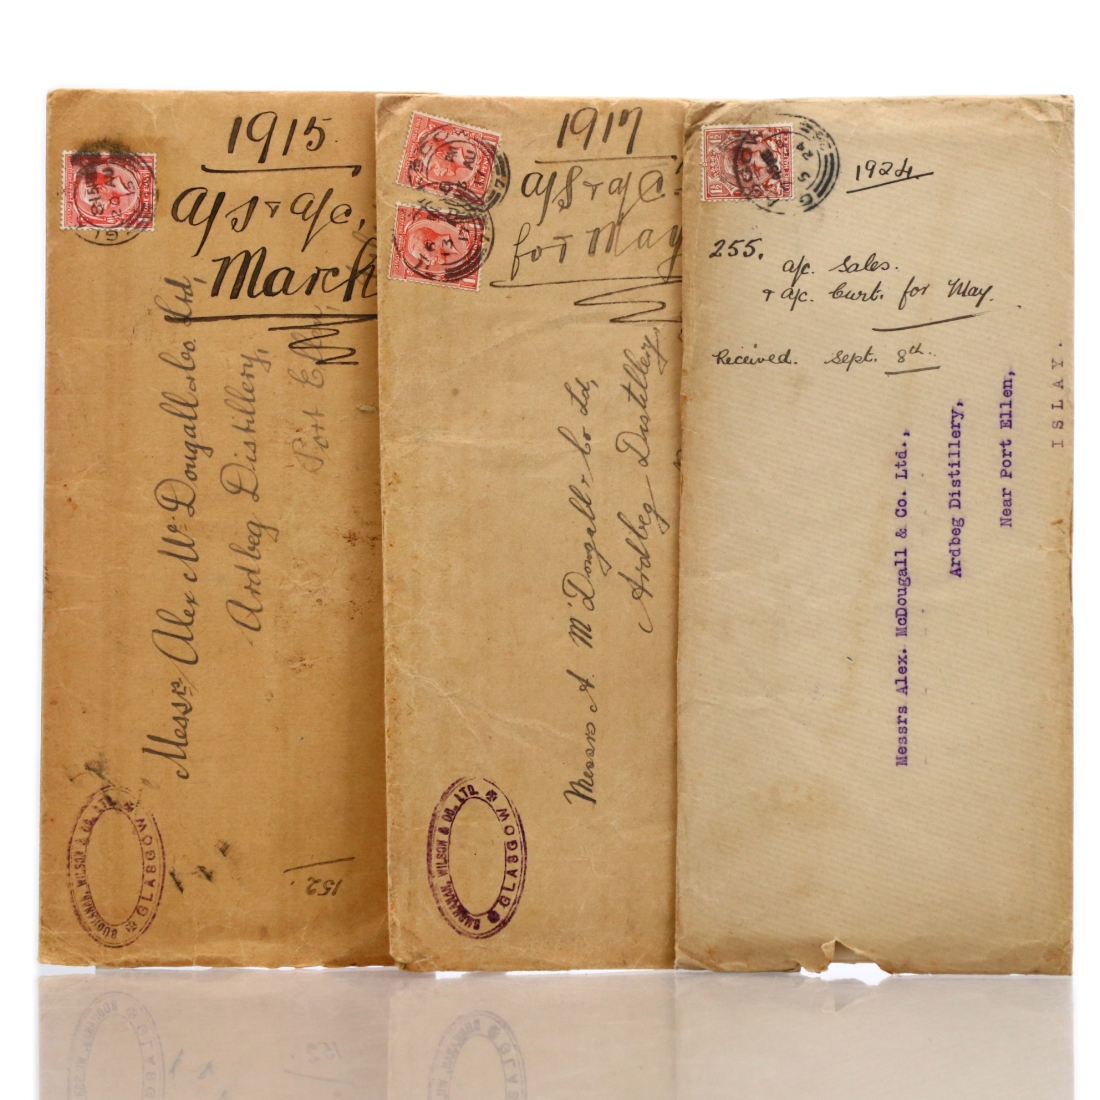 1915
a/s & a/c,
March
Messrs Alex Mc.Dougall & Co. Ltd,
Ardbeg Distillery,
Port Ellen,
BUCHANAN, WILSON & CO., LTD.
GLASGOW
152.
1917
a/s & a/c
for May
Messrs A. McDougall & Co Ld,
Ardbeg Distillery,
BUCHANAN, WILSON & CO., LTD.
GLASGOW
1924
255.
a/c. Sales.
& a/c. Curt. for May.
Received. Sept. 8th.
Messrs Alex. McDougall & Co. Ltd.,
Ardbeg Distillery,
Near Port Ellen,
ISLAY.